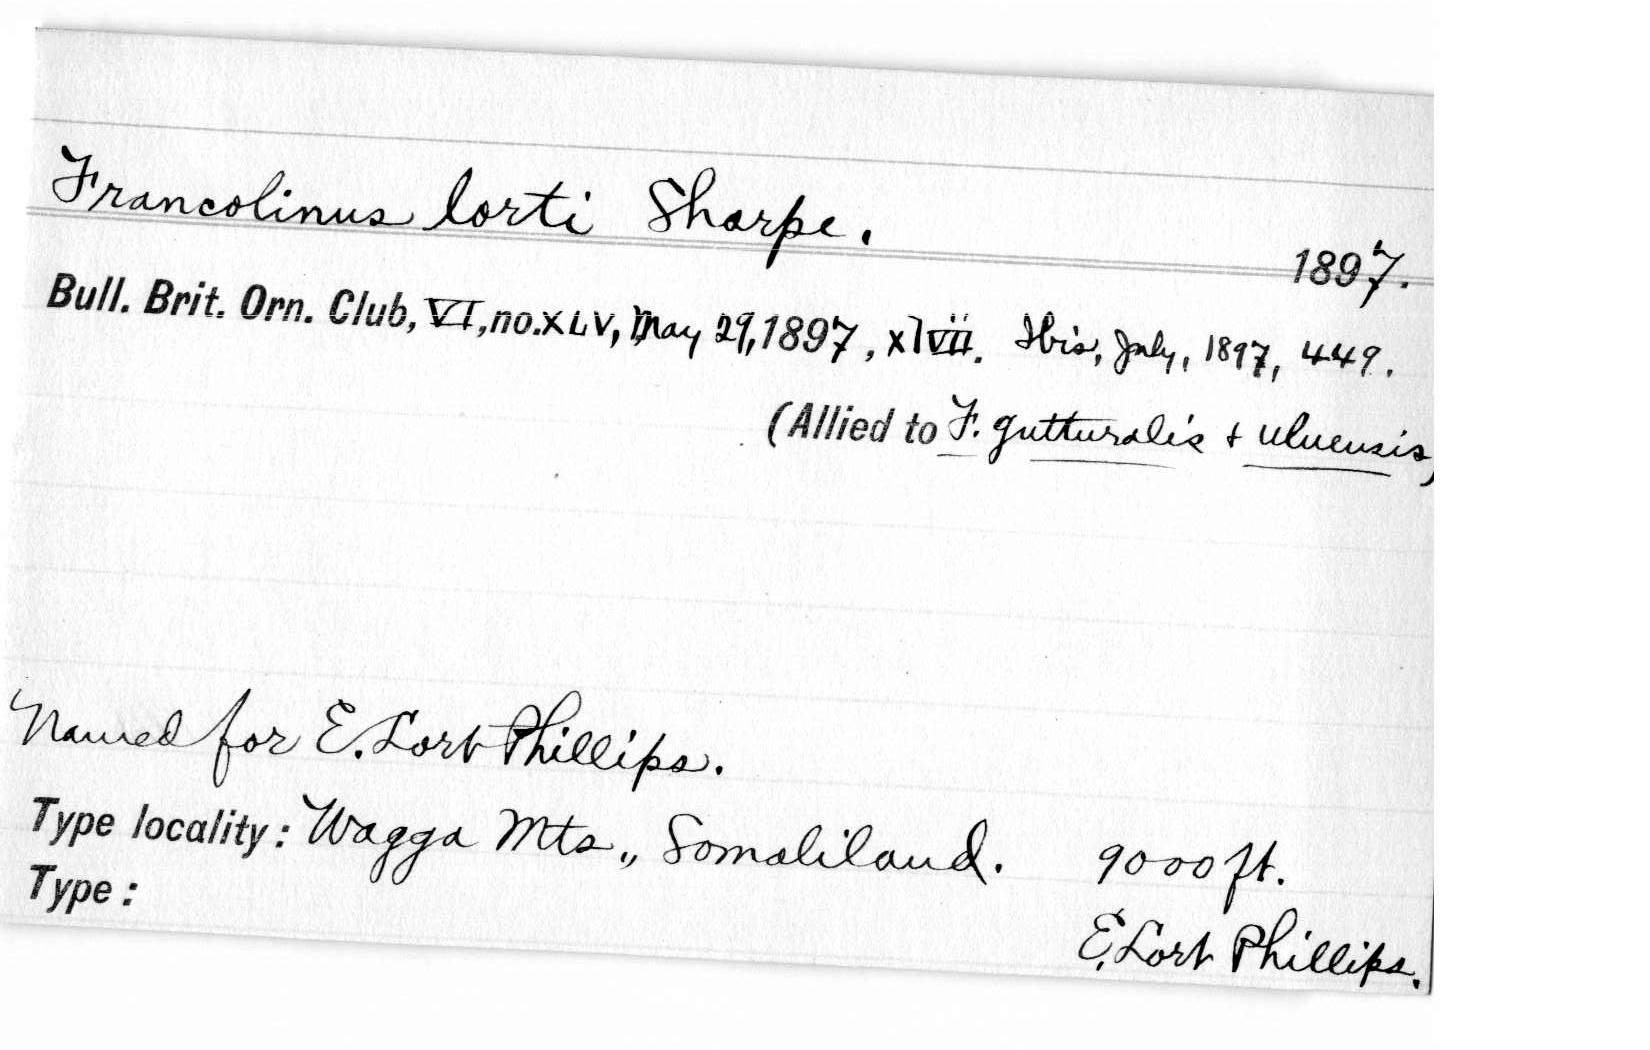 Francolinus lorti Sharpe.
1897.
Bull. Brit. Orn. Club, VI, no. XLV, May 29, 1897, xlvii. Ibis, July, 1897, 449.
(Allied to F. gutturalis + uluensis)
Named for E. Lort Phillips.
Type locality: Wagga Mts., Somaliland. 9000 ft.
Type:
E. Lort Phillips.